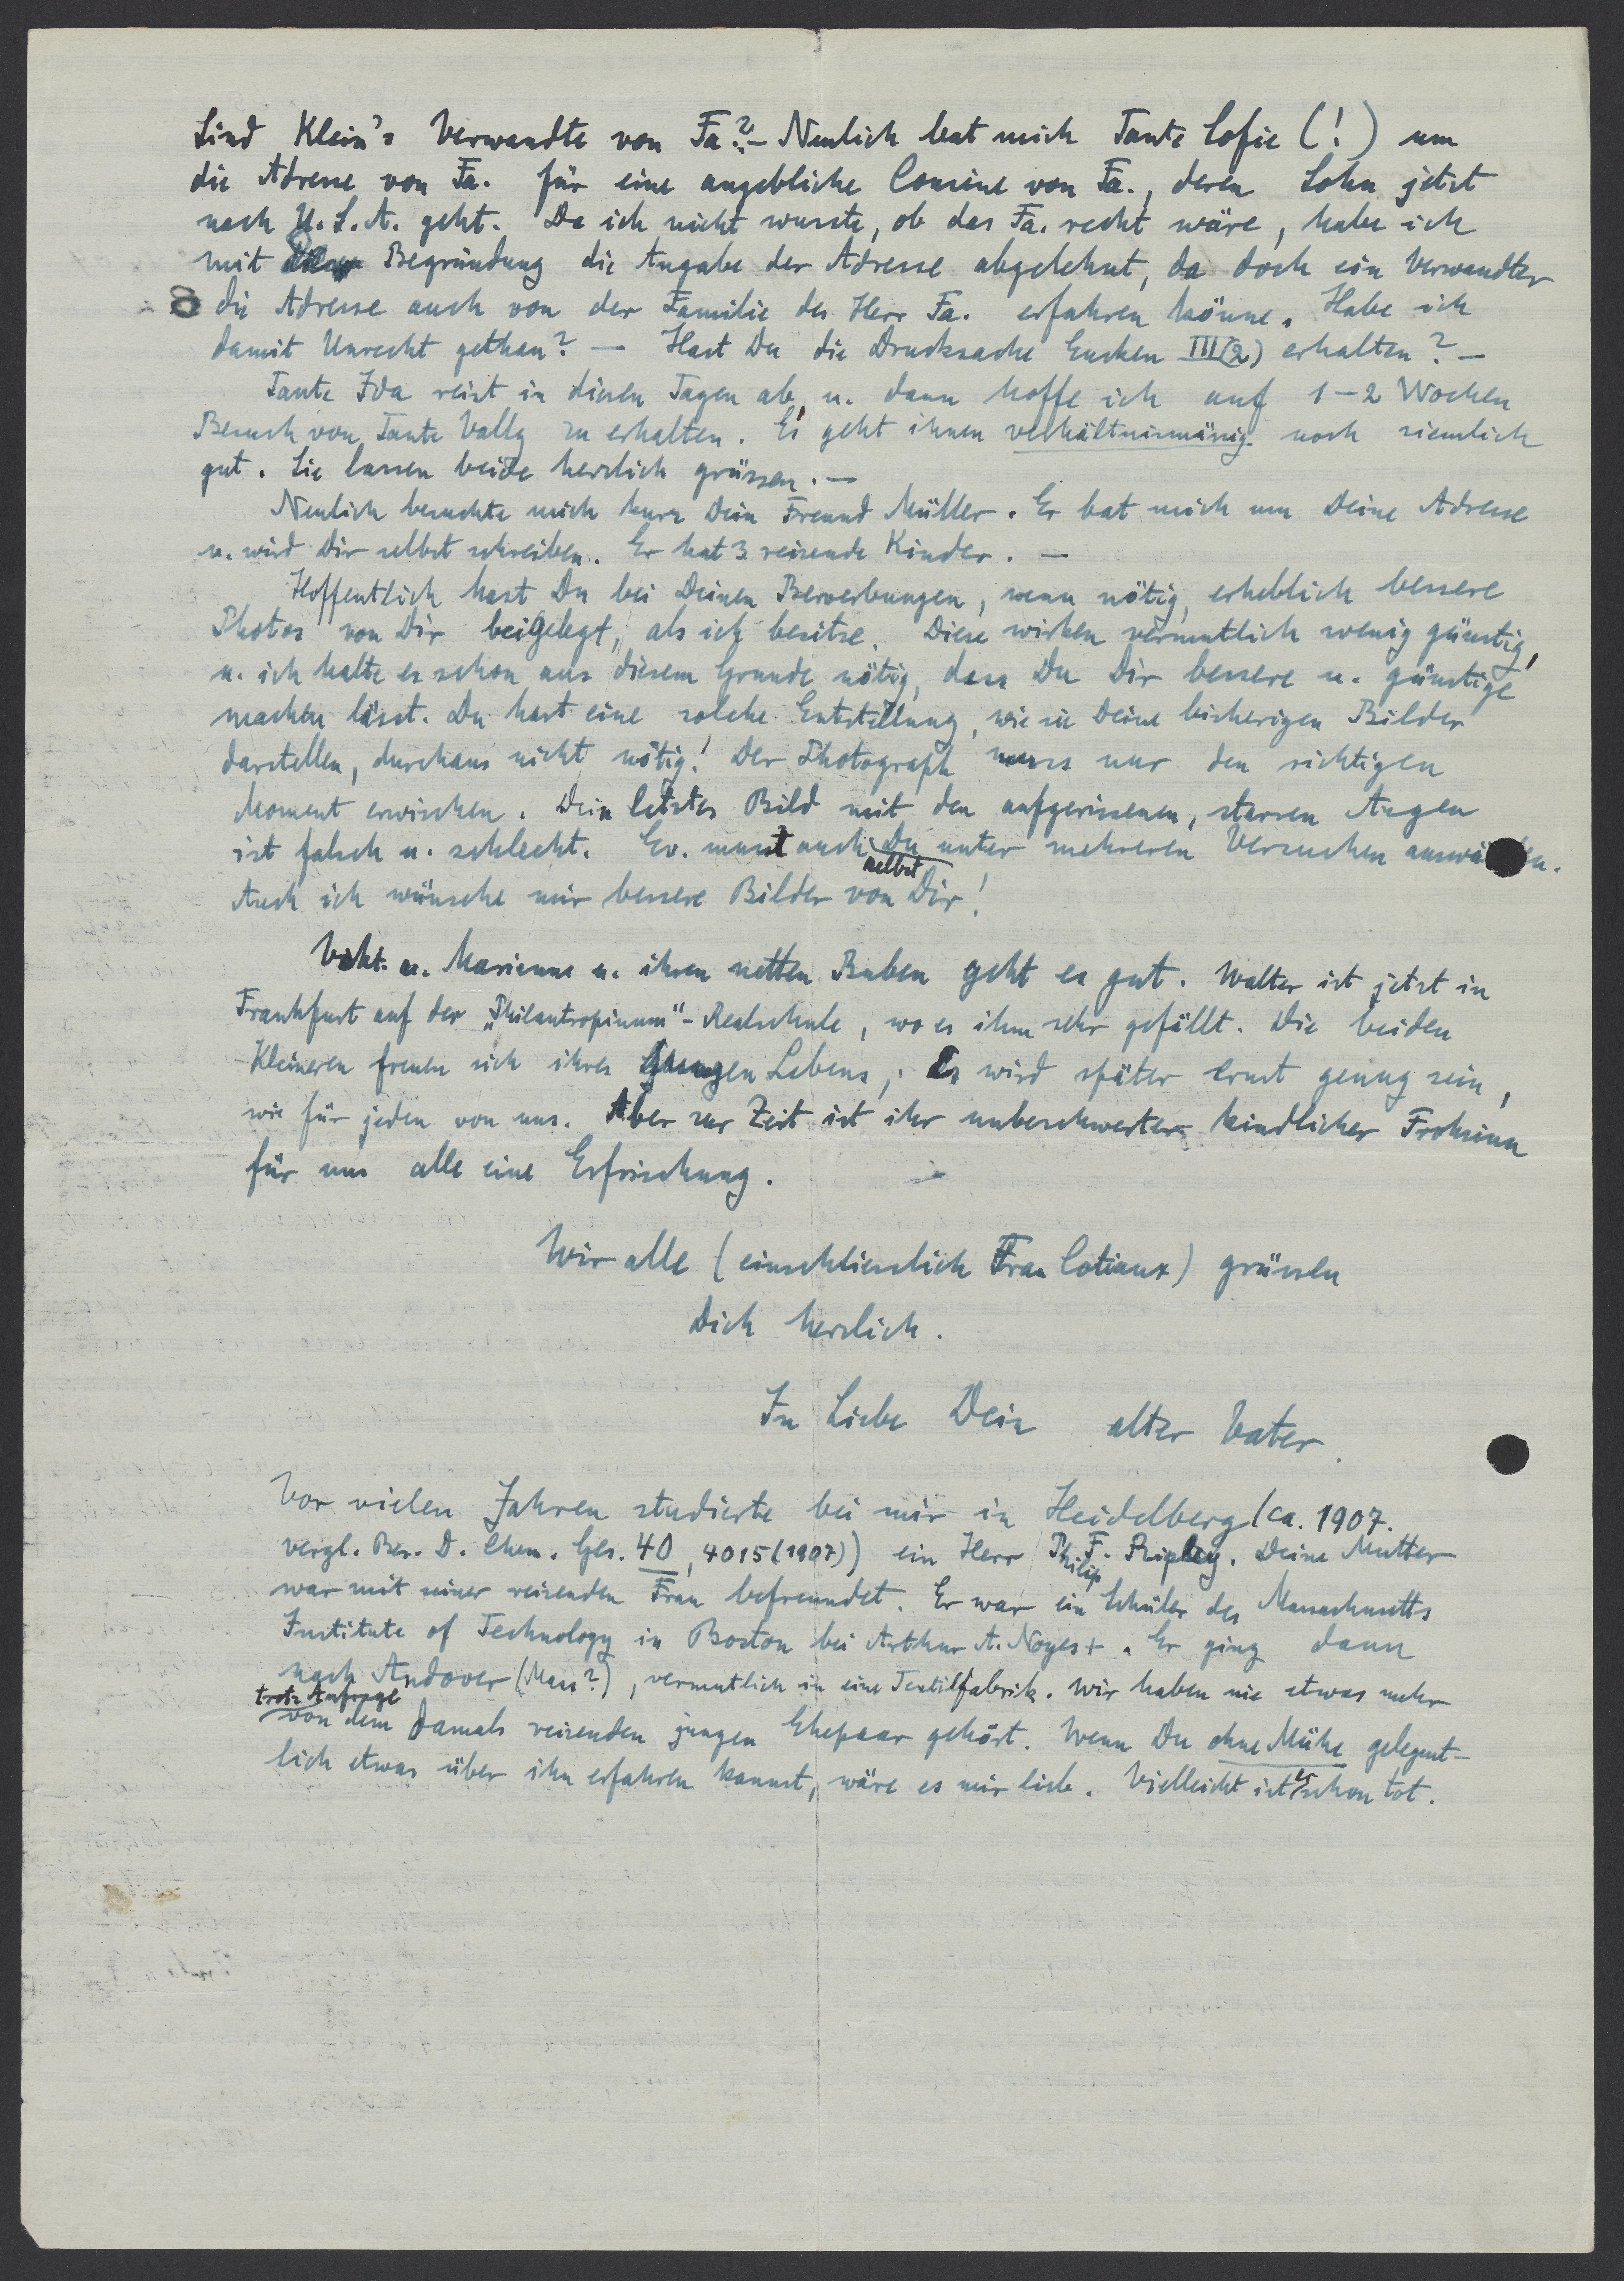 Sind Klein's Verwandte von Fa.? – Neulich bat mich Tante Sofie (!) um
die Adresse von Fa. für eine angebliche Cousine von Fa., deren Sohn jetzt
nach U.S.A. geht. Da ich nicht wusste, ob das Fa. recht wäre, habe ich
mit Begründung die Angabe der Adresse abgelehnt, da doch ein Verwandter
die Adresse auch von der Familie des Herr Fa. erfahren könne. Habe ich
damit Unrecht gethan? — Hast Du die Drucksache Eucken III(2) erhalten? —
Tante Ida reist in diesen Tagen ab, u. dann hoffe ich auf 1–2 Wochen
Besuch von Tante Vally zu erhalten. Es geht ihnen verhältnismässig noch ziemlich
gut. Sie lassen beide herzlich grüssen. —
Neulich besuchte mich kurz Dein Freund Müller. Er bat mich um Deine Adresse
u. wird Dir selbst schreiben. Er hat 3 reizende Kinder. —
Hoffentlich hast Du bei Deinen Bewerbungen, wenn nötig, erheblich bessere
Photos von Dir beigelegt, als ich besitze. Diese wirken vermutlich wenig günstig,
u. ich halte es schon aus diesem Grunde nötig, dass Du Dir bessere u. günstige
machen lässt. Du hast eine solche Entstellung, wie sie Deine bisherigen Bilder
darstellen, durchaus nicht nötig! Der Photograph muss nur den richtigen
Moment erwischen. Dein letztes Bild mit den aufgerissenen, starren Augen
ist falsch u. schlecht. Ev. musst auch Du selbst unter mehreren Versuchen
Auch ich wünsche mir bessere Bilder von Dir!
Vikt. u. Marianne u. ihren netten Buben geht es gut. Walter ist jetzt in
Frankfurt auf der „Philantropinum"-Realschule, wo es ihm sehr gefällt. Die beiden
Kleineren freuen sich ihres jungen Lebens; Es wird später ernst genug sein,
wie für jeden von uns. Aber zur Zeit ist ihr unbeschwerter kindlicher Frohsinn
für uns alle eine Erfrischung.
Wir alle (einschliesslich Frau Cotiaux) grüssen
Dich herzlich.
In Liebe Dein alter Vater.
Vor vielen Jahren studierte bei mir in Heidelberg (ca. 1907.
vergl. Ber. D. Chem. Ges. 40, 4015 (1907)) ein Herr Philip F. Ripley. Deine Mutter
war mit seiner reizenden Frau befreundet. Er war ein Schüler des Massachusetts
Institute of Technology in Boston bei Arthur A. Noyes +. Er ging dann
nach Andover (Mass?), vermutlich in eine Textilfabrik. Wir haben nie etwas mehr
trotz Anfrage
von dem damals reizenden jungen Ehepaar gehört. Wenn Du ohne Mühe gelegent-
lich etwas über ihn erfahren kannst, wäre es mir lieb. Vielleicht ist er schon tot.